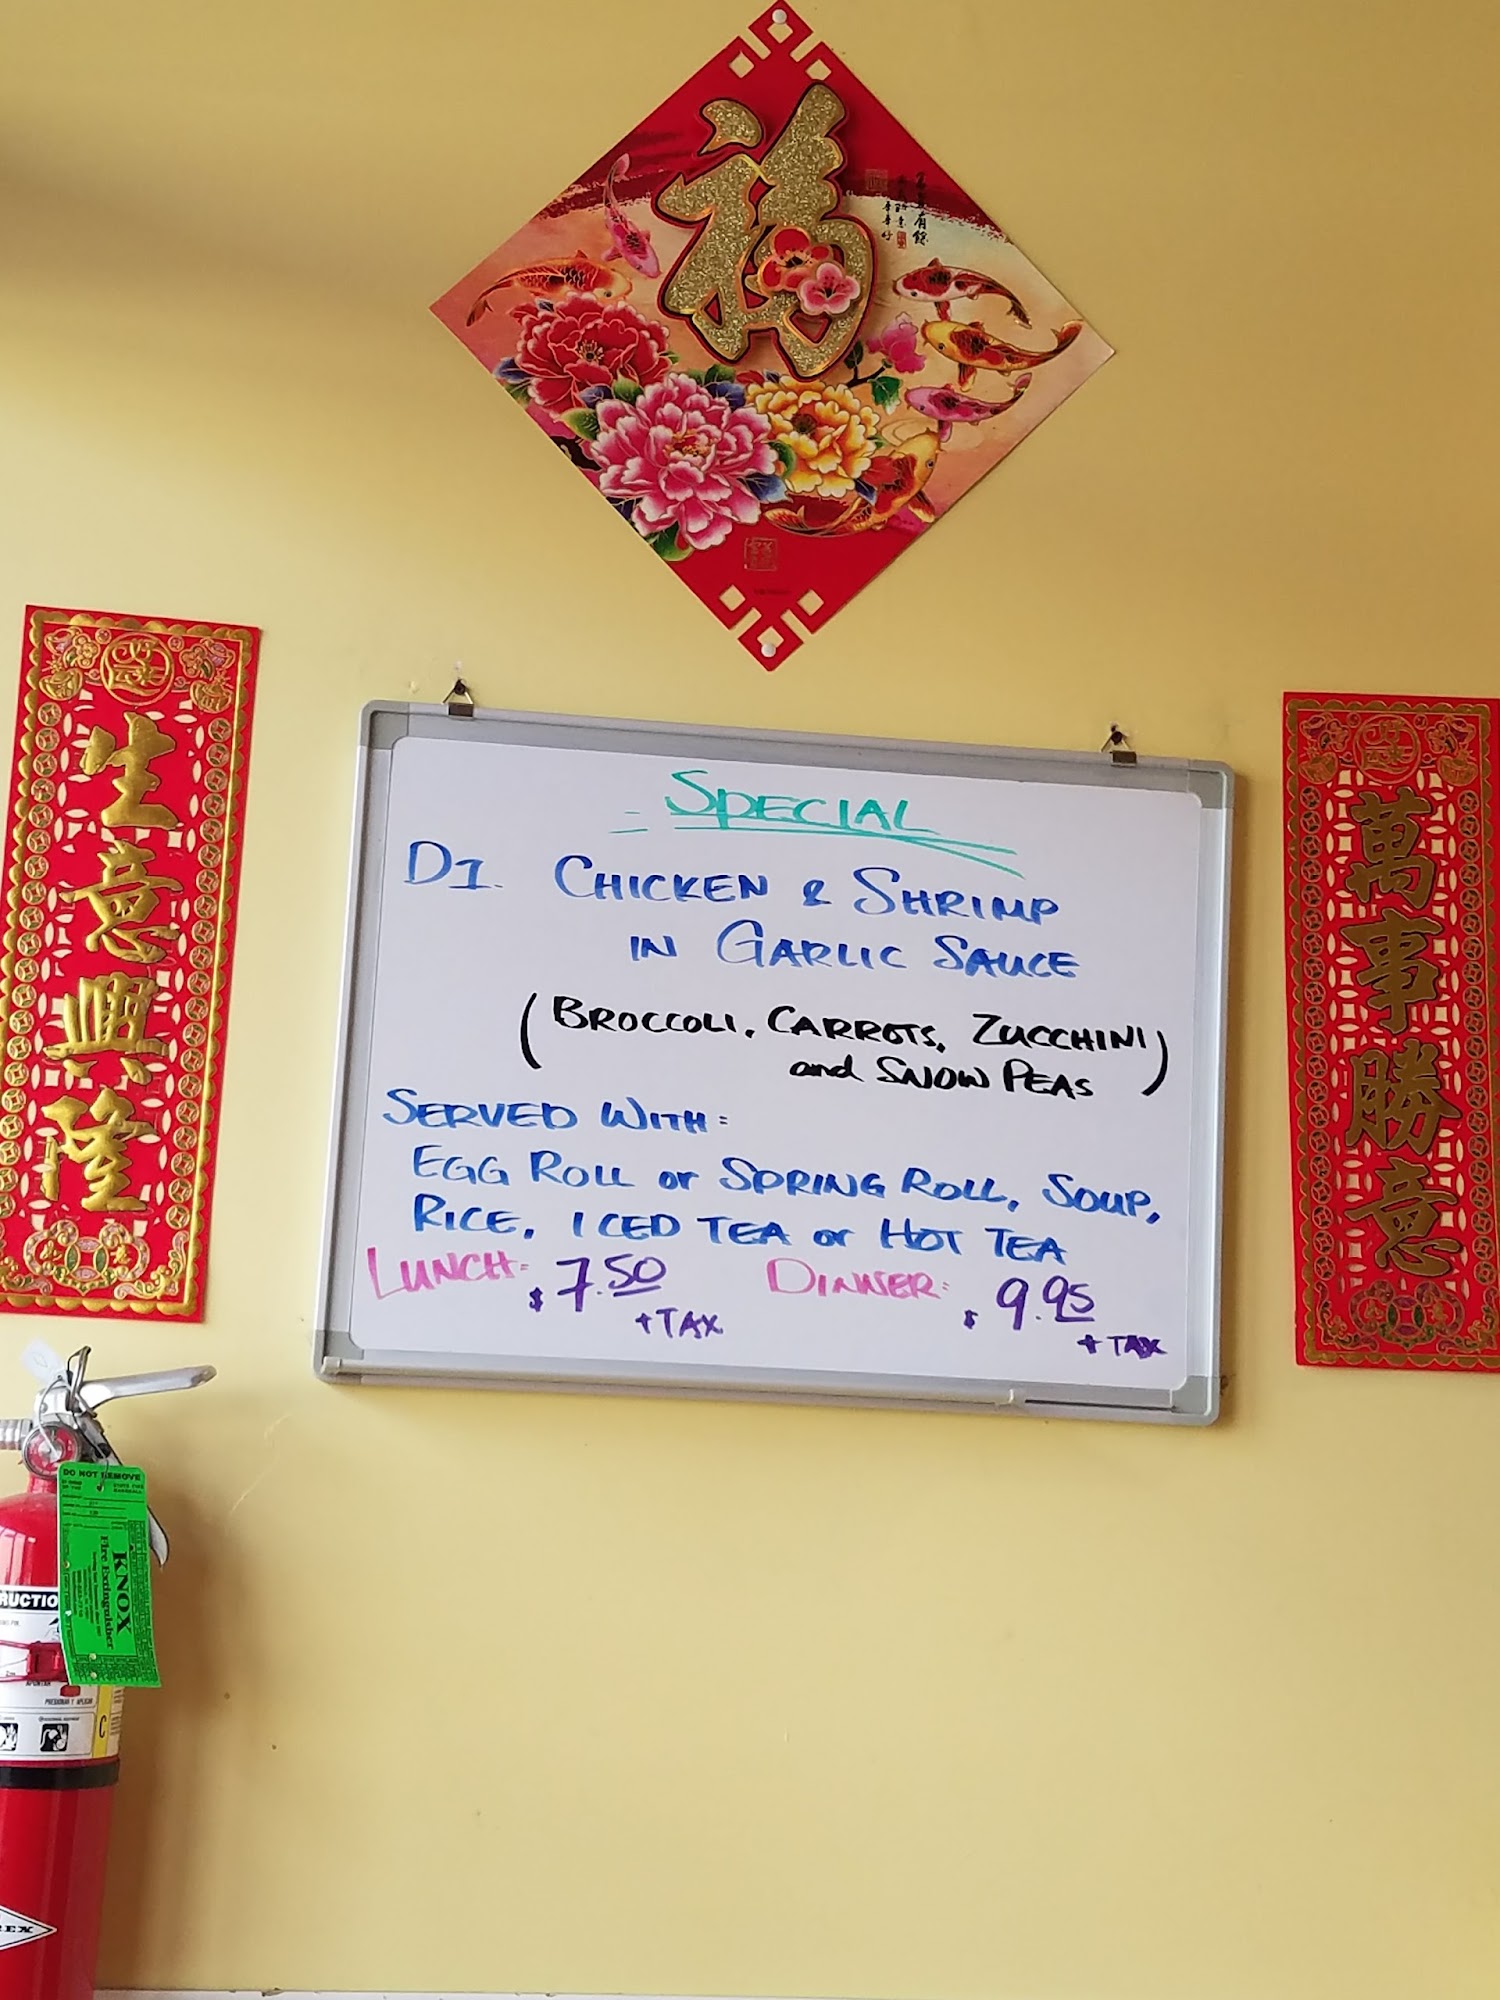 福
SPECIAL
D1. CHICKEN & SHRIMP
IN GARLIC SAUCE
(BROCCOLI, CARROTS, ZUCCHINI
and SNOW PEAS)
SERVED WITH:
EGG ROLL or SPRING ROLL, SOUP,
RICE, ICED TEA or HOT TEA
LUNCH: $7.50
+TAX
DINNER: $9.95
+TAX
生意興隆
萬事勝意
DO NOT REMOVE
KNOX
Fire Extinguisher
RUCTIO
C
REX